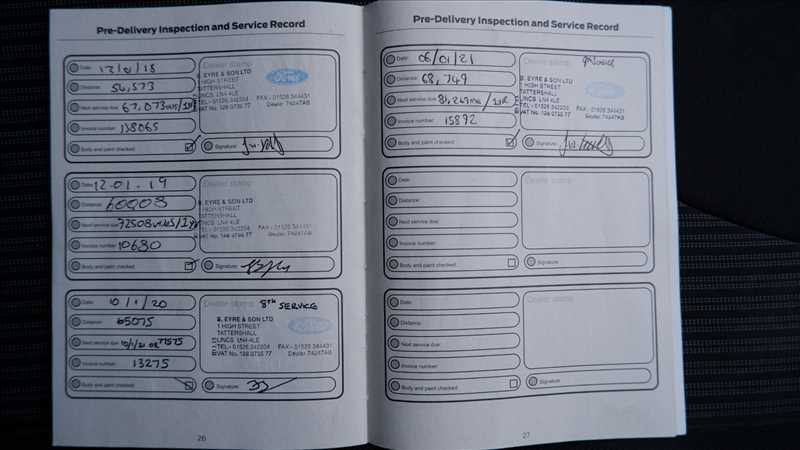 Pre-Delivery Inspection and Service Record
Date: 12/01/18
Distance: 54,573
Next service due: 67,073
Invoice number: 138065
Body and paint checked
Dealer stamp
B. EYRE & SON LTD
1 HIGH STREET
TATTERSHALL
LINCS LN4 4LE
TEL - 01526 342204 FAX - 01526 344431
VAT No. 128 0735 77 Dealer 74247AB
Ford
Signature:
Date: 12.01.19
Distance: 60008
Next service due: 72508
Invoice number: 10680
Body and paint checked
Dealer stamp
B. EYRE & SON LTD
1 HIGH STREET
TATTERSHALL
LINCS LN4 4LE
TEL - 01526 342204 FAX - 01526 344431
VAT No. 128 0735 77 Dealer 74247AB
Signature:
Date: 10/1/20
Distance: 65075
Next service due: 10/1/21 OR 77575
Invoice number: 13275
Body and paint checked
Dealer stamp 8TH SERVICE
B. EYRE & SON LTD
1 HIGH STREET
TATTERSHALL
LINCS LN4 4LE
TEL - 01526 342204 FAX - 01526 344431
VAT No. 128 0735 77 Dealer 74247AB
Signature:
26
Pre-Delivery Inspection and Service Record
Date: 06/01/21
Distance: 68,749
Next service due: 81,249
Invoice number: 15892
Body and paint checked
Dealer stamp
B. EYRE & SON LTD
1 HIGH STREET
TATTERSHALL
LINCS LN4 4LE
TEL - 01526 342204 FAX - 01526 344431
VAT No. 128 0735 77 Dealer 74247AB
Signature:
Date:
Distance:
Next service due:
Invoice number:
Body and paint checked
Dealer stamp
Signature:
Date:
Distance:
Next service due:
Invoice number:
Body and paint checked
Dealer stamp
Signature:
27